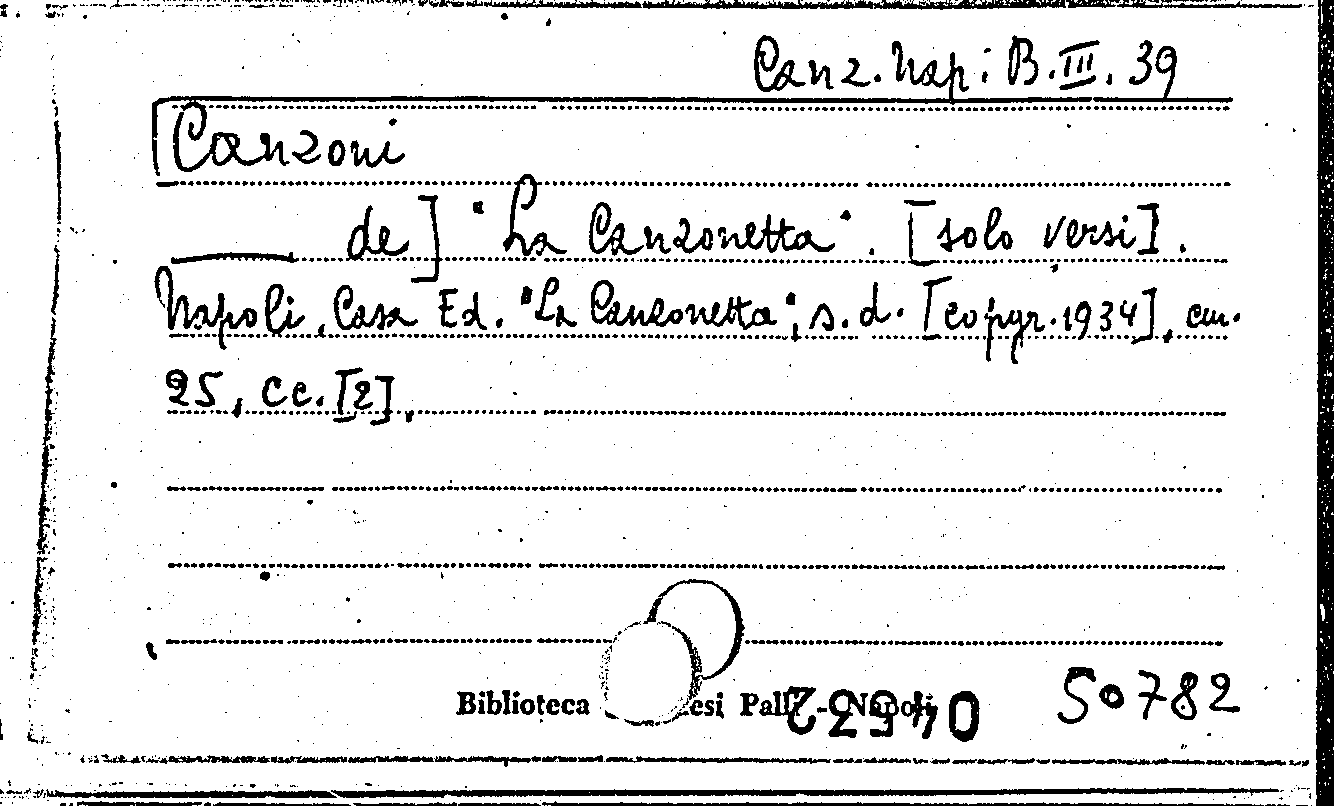 Canz. Nap: B. III. 39
[Canzoni
de] "La Canzonetta". [solo versi].
Napoli, Casa Ed. "La Canzonetta", s. d. [copyr. 1934], cm.
25, cc. [2].
Biblioteca esi Palli - Napoli
50782